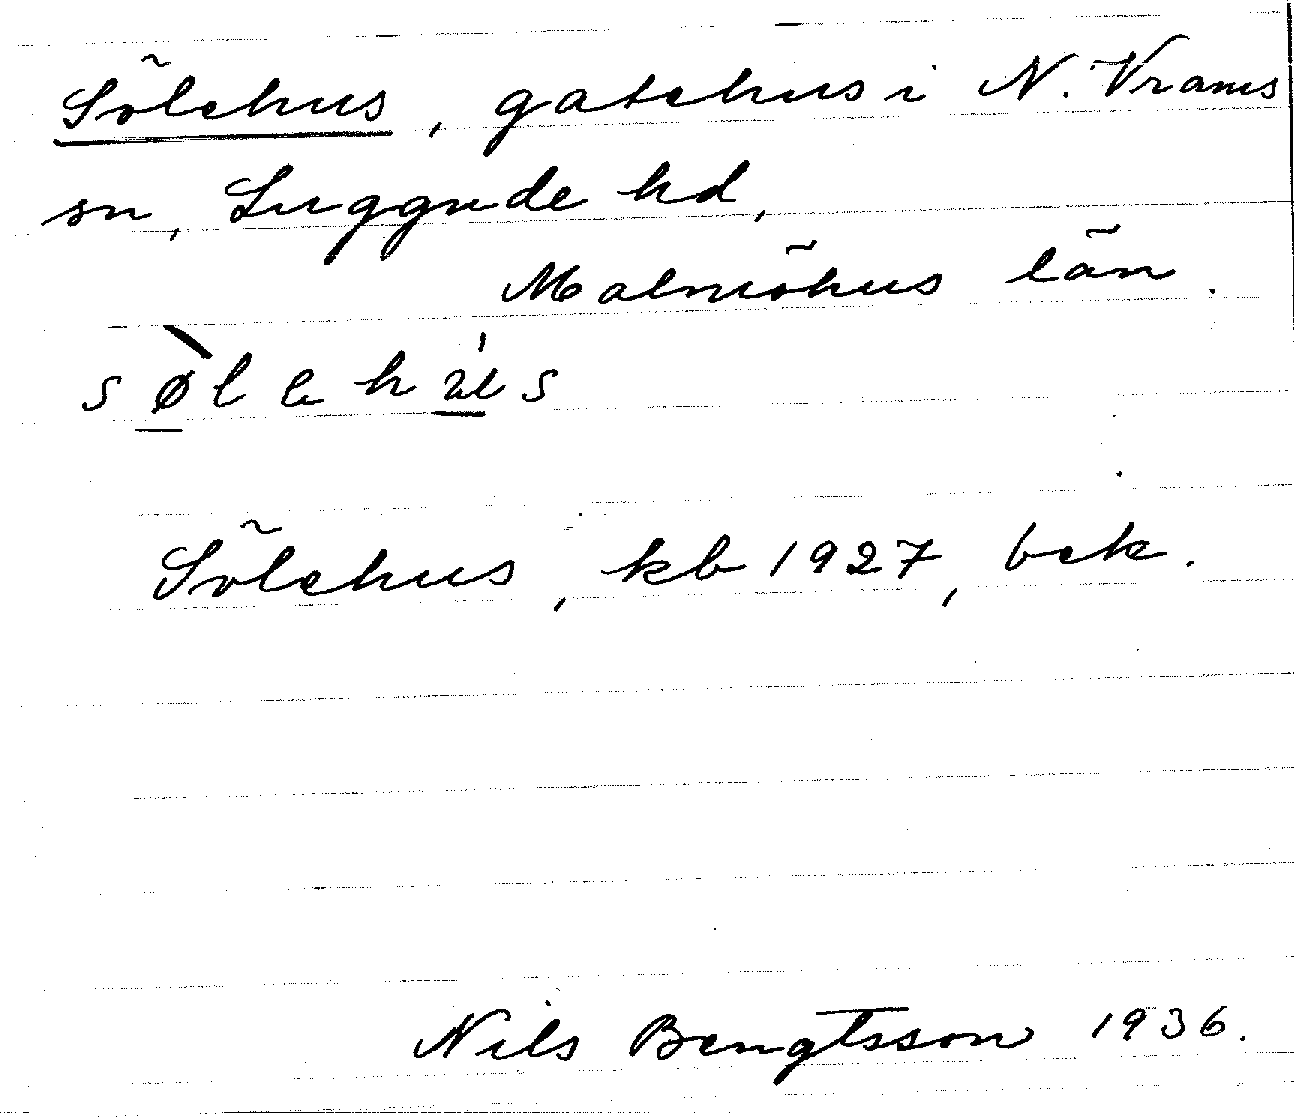 Sölehus, gatehus i N. Vrams
sn, Luggude hd,
Malmöhus län.
sø̀lehu̇s
Sölehus, kb 1927, bek.
Nils Bengtsson 1936.